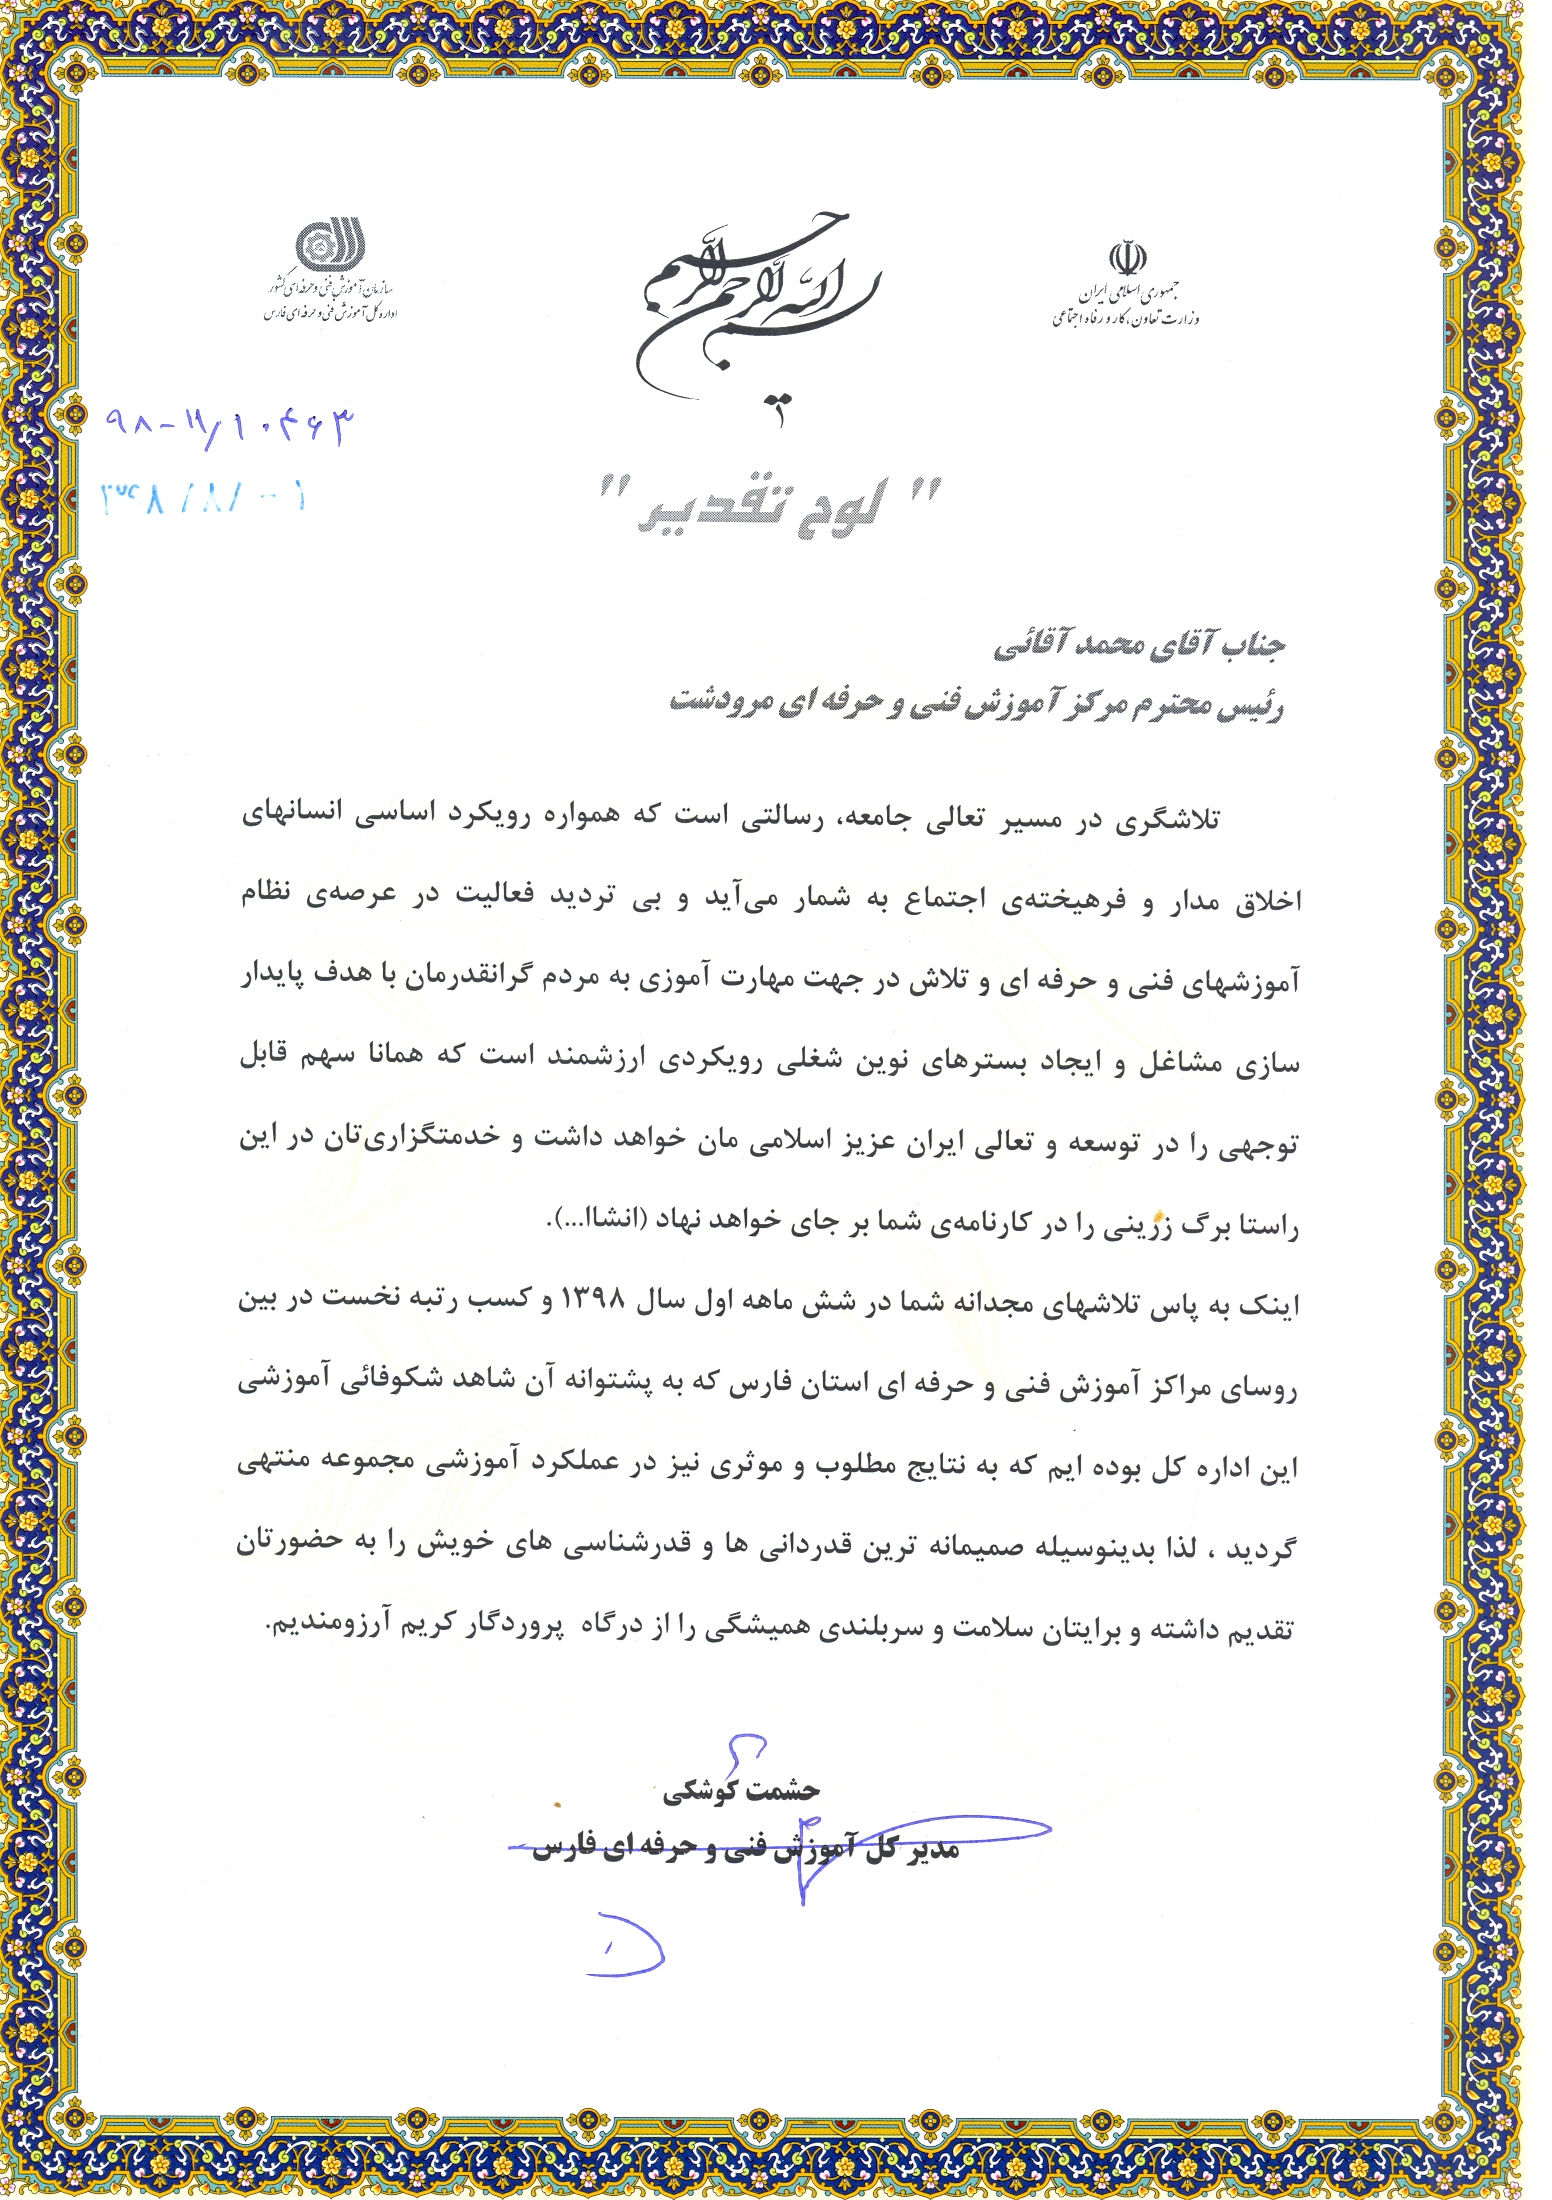 بسم الله الرحمن الرحیم
جمهوری اسلامی ایران
وزارت تعاون، کار و رفاه اجتماعی
سازمان آموزش فنی و حرفه ای کشور
اداره کل آموزش فنی و حرفه ای فارس
۹۸-۱۱/۱۰۴۶۳
" لوح تقدیر "
جناب آقای محمد آقائی
رئیس محترم مرکز آموزش فنی و حرفه ای مرودشت
تلاشگری در مسیر تعالی جامعه، رسالتی است که همواره رویکرد اساسی انسانهای
اخلاق مدار و فرهیخته‌ی اجتماع به شمار می‌آید و بی تردید فعالیت در عرصه‌ی نظام
آموزشهای فنی و حرفه ای و تلاش در جهت مهارت آموزی به مردم گرانقدرمان با هدف پایدار
سازی مشاغل و ایجاد بسترهای نوین شغلی رویکردی ارزشمند است که همانا سهم قابل
توجهی را در توسعه و تعالی ایران عزیز اسلامی مان خواهد داشت و خدمتگزاری‌تان در این
راستا برگ زرینی را در کارنامه‌ی شما بر جای خواهد نهاد (انشاا...).
اینک به پاس تلاشهای مجدانه شما در شش ماهه اول سال ۱۳۹۸ و کسب رتبه نخست در بین
روسای مراکز آموزش فنی و حرفه ای استان فارس که به پشتوانه آن شاهد شکوفائی آموزشی
این اداره کل بوده ایم که به نتایج مطلوب و موثری نیز در عملکرد آموزشی مجموعه منتهی
گردید ، لذا بدینوسیله صمیمانه ترین قدردانی ها و قدرشناسی های خویش را به حضورتان
تقدیم داشته و برایتان سلامت و سربلندی همیشگی را از درگاه پروردگار کریم آرزومندیم.
حشمت کوشکی
مدیر کل آموزش فنی و حرفه ای فارس